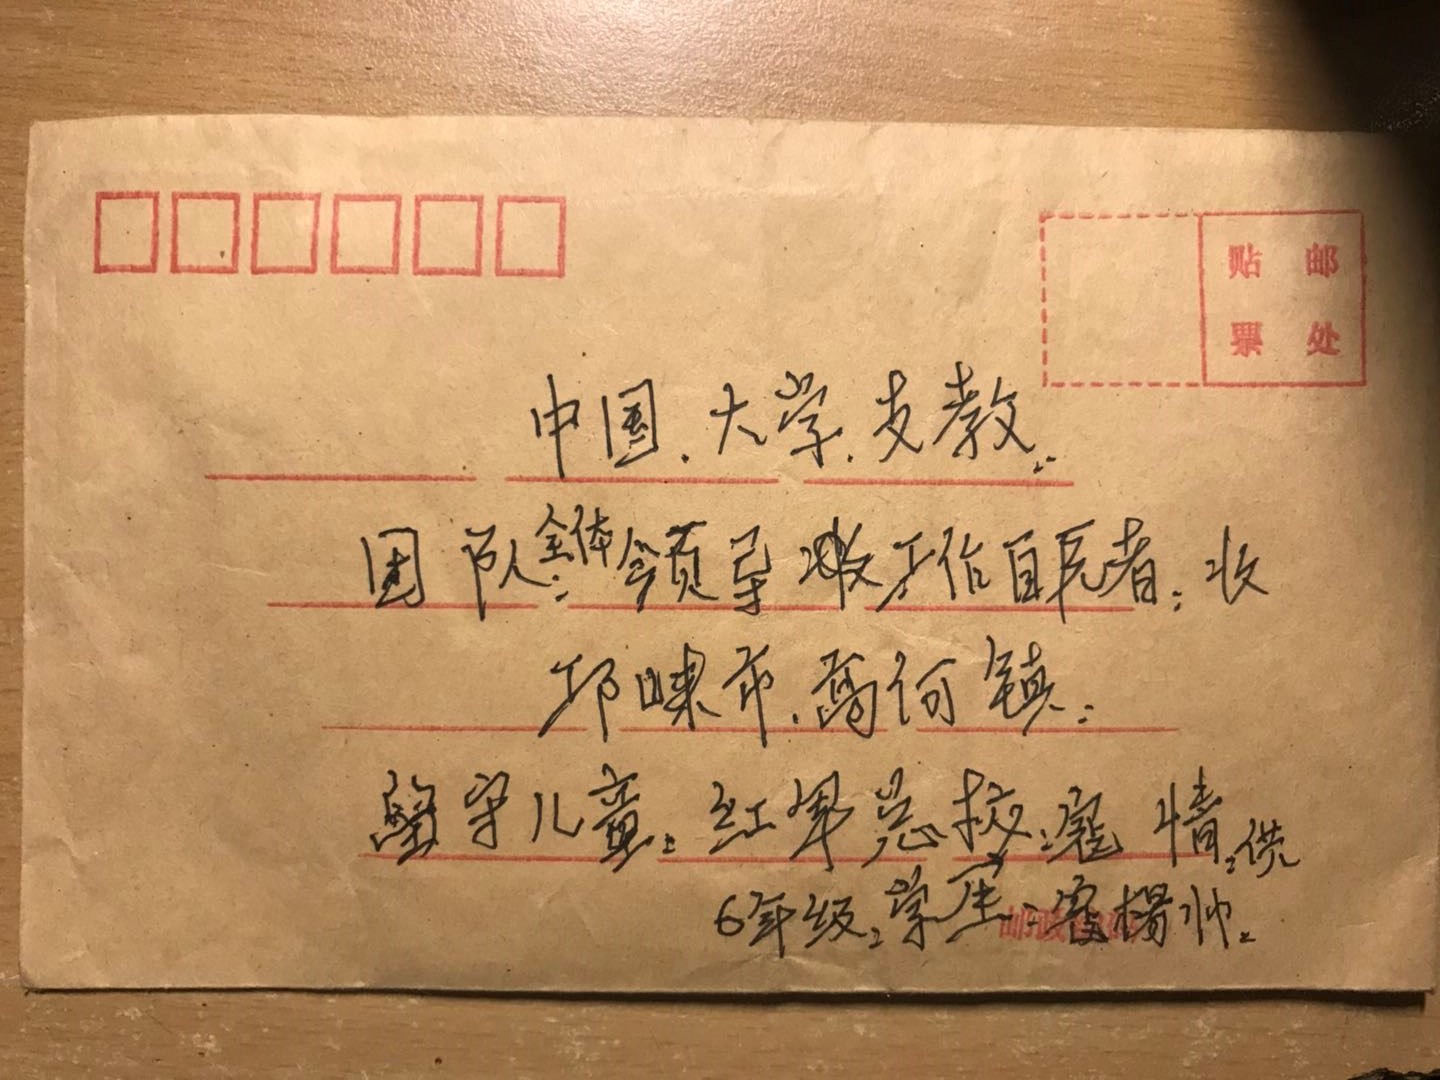 贴 邮
票 处
中国.大学.支教.
团队全体:领导 工作自民者:收
邛崃市.高何镇:
留守儿童:红军总校:寇 情:供
6年级:学生:寇楊帅.